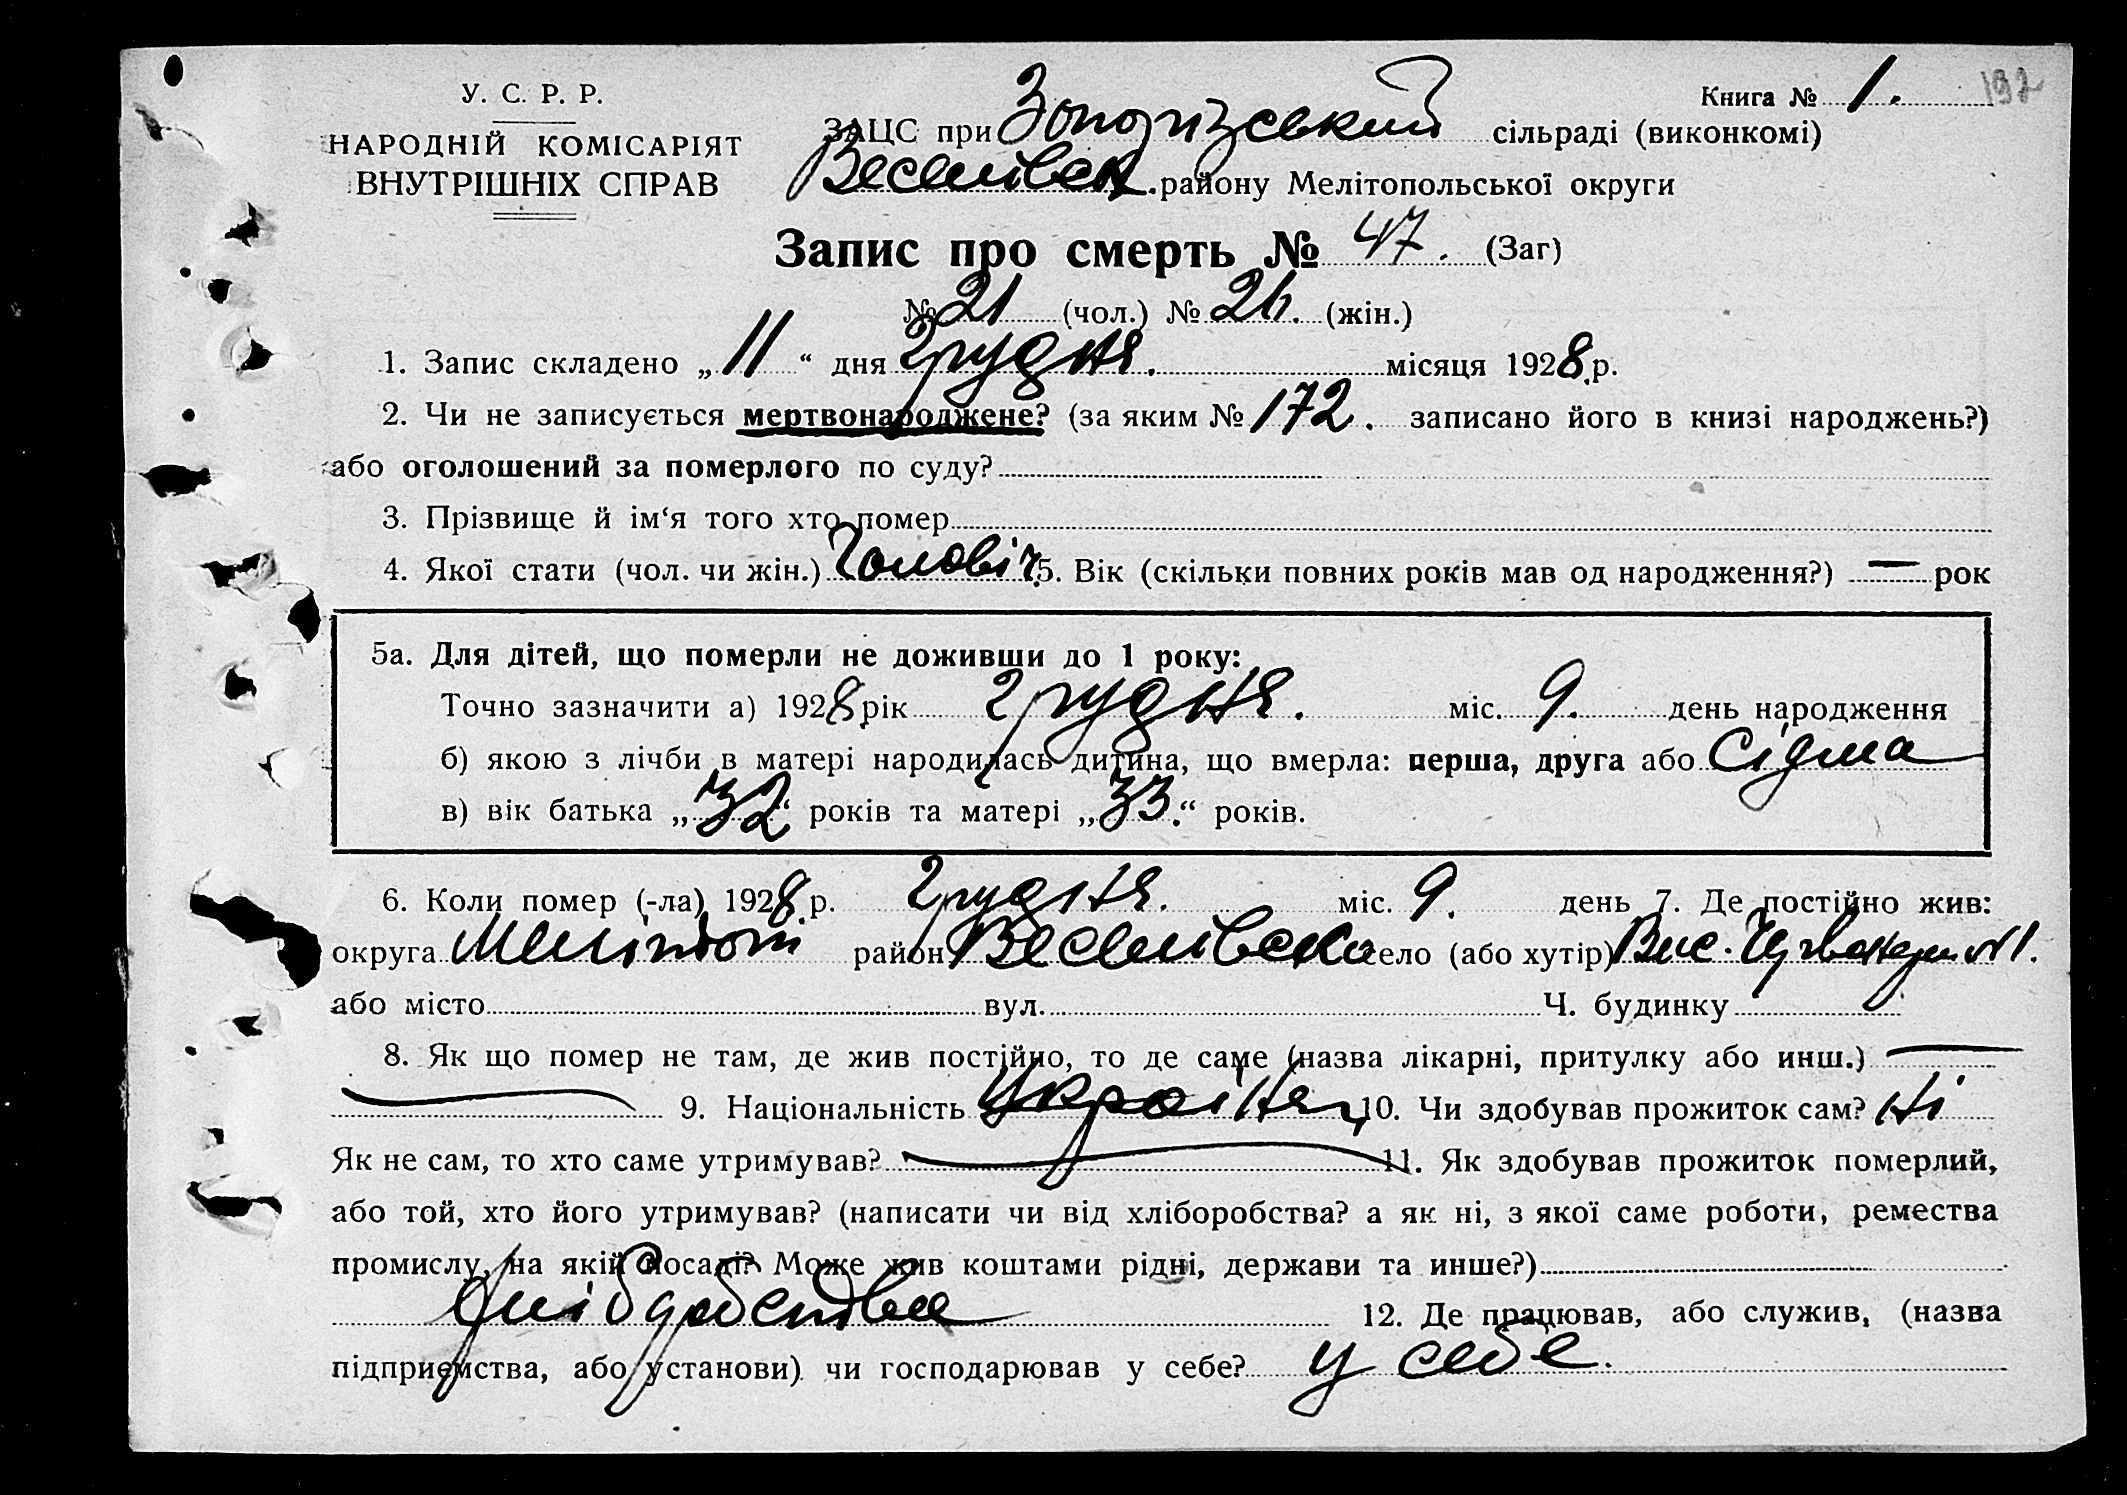 У. С. Р. Р.
НАРОДНІЙ КОМІСАРІЯТ
ВНУТРІШНІХ СПРАВ
Книга № 1. 192
ЗАЦС при сільраді (виконкомі)
Веселівськ. району Мелітопольської округи
Запис про смерть № 47. (Заг)
№ 21 (чол.) № 26. (жін.)
1. Запис складено „11“ дня Грудня. місяця 1928 р.
2. Чи не записується мертвонароджене? (за яким № 172. записано його в книзі народжень?)
або оголошений за померлого по суду?
3. Прізвище й ім‘я того хто помер
4. Якої стати (чол. чи жін.) Чоловіч. 5. Вік (скільки повних років мав од народження?) — рок
5а. Для дітей, що померли не доживши до 1 року:
Точно зазначити а) 1928 рік Грудня. міс. 9. день народження
б) якою з лічби в матері народилась дитина, що вмерла: перша, друга або Сідма
в) вік батька „32“ років та матері „33.“ років.
6. Коли помер (-ла) 1928 р. Грудня. міс. 9. день 7. Де постійно жив:
округа Меліт район Веселівськ село (або хутір) Вис. №1.
або місто вул. Ч. будинку
8. Як що помер не там, де жив постійно, то де саме (назва лікарні, притулку або инш.) —
— 9. Національність Украінец 10. Чи здобував прожиток сам? Ні
Як не сам, то хто саме утримував? — 11. Як здобував прожиток померлий,
або той, хто його утримував? (написати чи від хліборобства? а як ні, з якої саме роботи, ремества
промислу, на якій посаді? Може жив коштами рідні, держави та инше?)
12. Де працював, або служив, (назва
підприємства, або установи) чи господарював у себе? у себе.